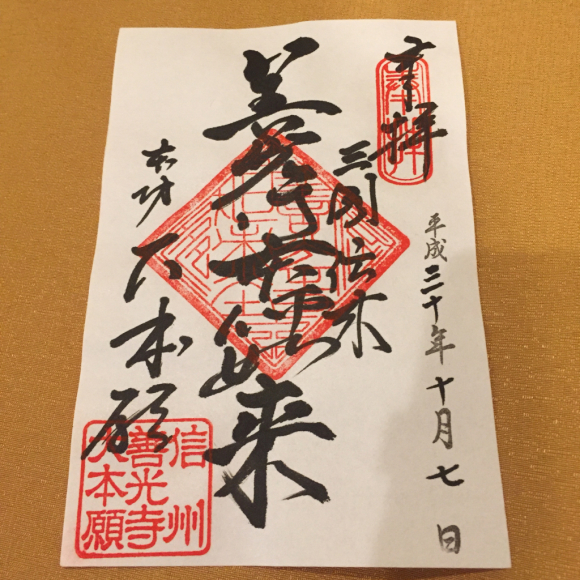 奉拝
平成三十年十月七日
三国伝来
善光寺如来
本坊
大本願
信州
善光寺
大本願